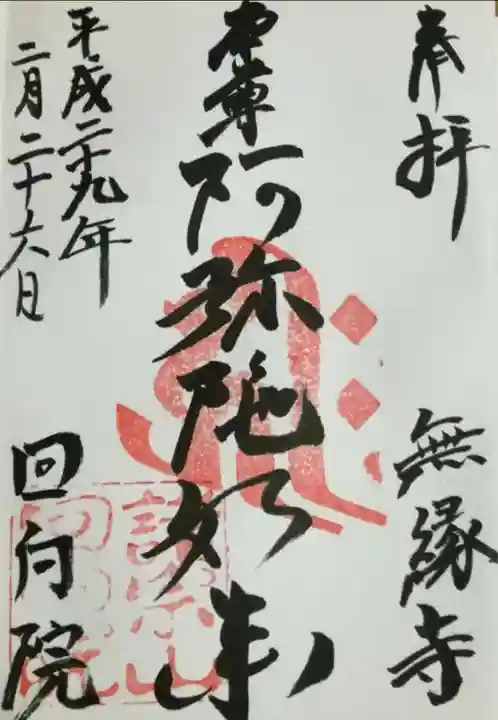 奉拝
無縁寺
本尊
阿弥陀如来
平成二十九年
二月二十六日
回向院
諸宗山
回向院